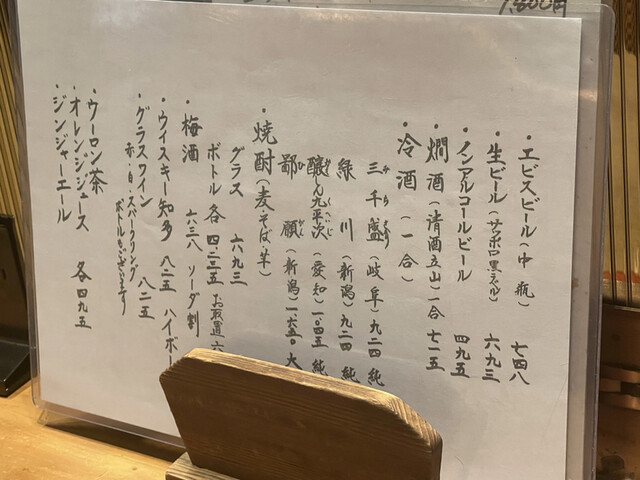 1,800円
・エビスビール(中瓶) 七四八
・生ビール(サッポロ黒ラベル) 六九三
・ノンアルコールビール 四九五
・燗酒(清酒立山)一合 七二五
・冷酒(一合)
三千盛(岐阜)九二四 純
緑川(新潟)九二四 純
醸し人九平次(愛知)一、〇四五 純
鄙願(新潟)一、六五〇 大
・焼酎(麦そば芋)
グラス 六九三
ボトル 各四、二三五 お取置六
・梅酒 六三八 ソーダ割
・ウイスキー知多 八二五 ハイボー
・グラスワイン 八二五
赤・白・スパークリング
ボトルもございます
・ウーロン茶
・オレンジジュース 各四九五
・ジンジャーエール